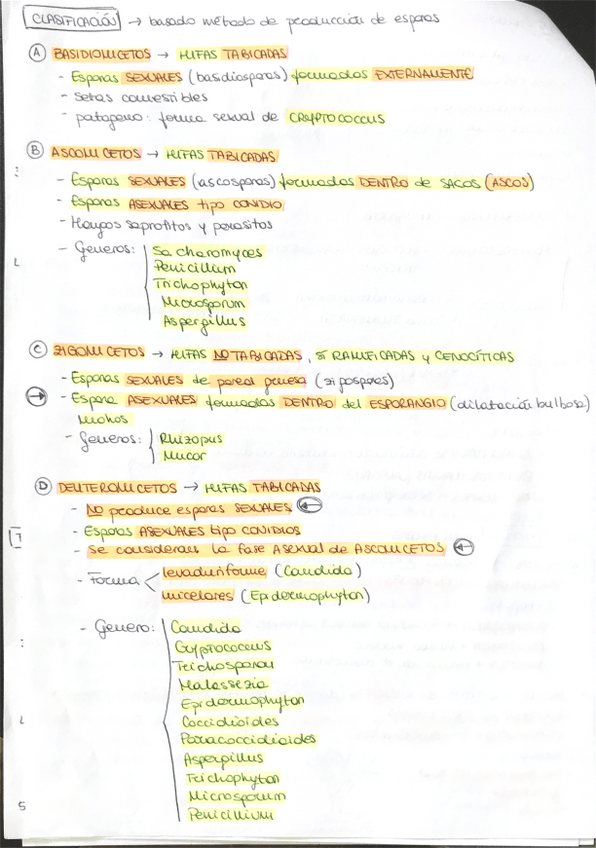 CLASIFICACIÓN → basado método de producción de esporas
A BASIDIOMICETOS → HIFAS TABICADAS
- Esporas SEXUALES (basidiosporas) formadas EXTERNAMENTE
- Setas comestibles
- patógeno: forma sexual de CRYPTOCOCCUS
B ASCOMICETOS → HIFAS TABICADAS
- Esporas SEXUALES (ascosporas) formadas DENTRO de SACOS (ASCOS)
- Esporas ASEXUALES tipo CONIDIO
- Hongos saprofitos y parásitos
- Géneros: Saccharomyces
Penicillium
Trichophyton
Microsporum
Aspergillus
C ZIGOMICETOS → HIFAS NO TABICADAS, SÍ RAMIFICADAS y CENOCÍTICAS
- Esporas SEXUALES de pared gruesa (zigosporas)
→ - Espora ASEXUALES formadas DENTRO del ESPORANGIO (dilatación bulbosa)
Mohos
- Géneros: Rhizopus
Mucor
D DEUTEROMICETOS → HIFAS TABICADAS
- No produce esporas SEXUALES ←
- Esporas ASEXUALES tipo CONIDIOS
- se consideran la fase ASEXUAL de ASCOMICETOS ←
- Forma < levaduriforme (Candida)
micelares (Epidermophyton)
- Género: Candida
Cryptococcus
Trichosporon
Malassezia
Epidermophyton
Coccidioides
Paracoccidioides
Aspergillus
Trichophyton
Microsporum
Penicillium